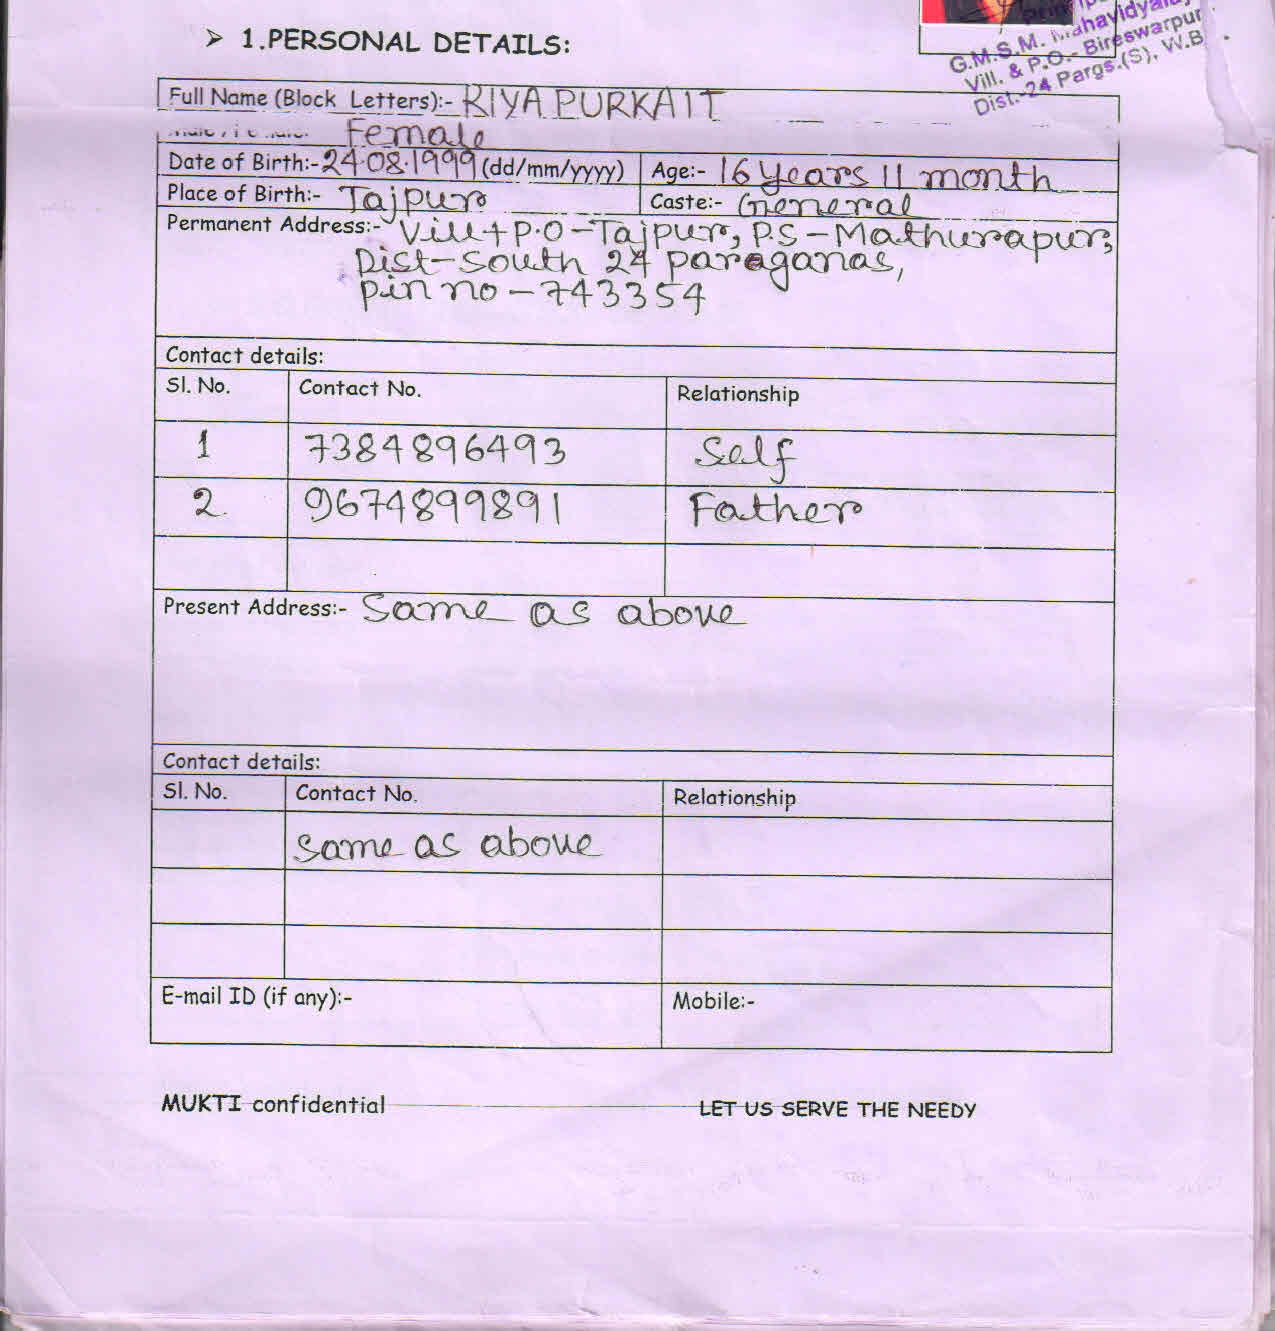 ➢ 1.PERSONAL DETAILS:
G.M.S.M. Mahavidyalay
Vill. & P.O.- Bireswarpur
Dist.-24 Pargs.(S), W.B.
Full Name (Block Letters):- RIYA PURKAIT
Female
Date of Birth:- 24.08.1999 (dd/mm/yyyy) Age:- 16 years 11 month
Place of Birth:- Tajpur Caste:- General
Permanent Address:- Vill+P.O-Tajpur, P.S-Mathurapur,
Dist-South 24 paraganas,
pin no-743354
Contact details:
Sl. No. Contact No. Relationship
1 7384896493 Self
2. 9674899891 Father
Present Address:- Same as above
Contact details:
Sl. No. Contact No. Relationship
same as above
E-mail ID (if any):- Mobile:-
MUKTI confidential LET US SERVE THE NEEDY